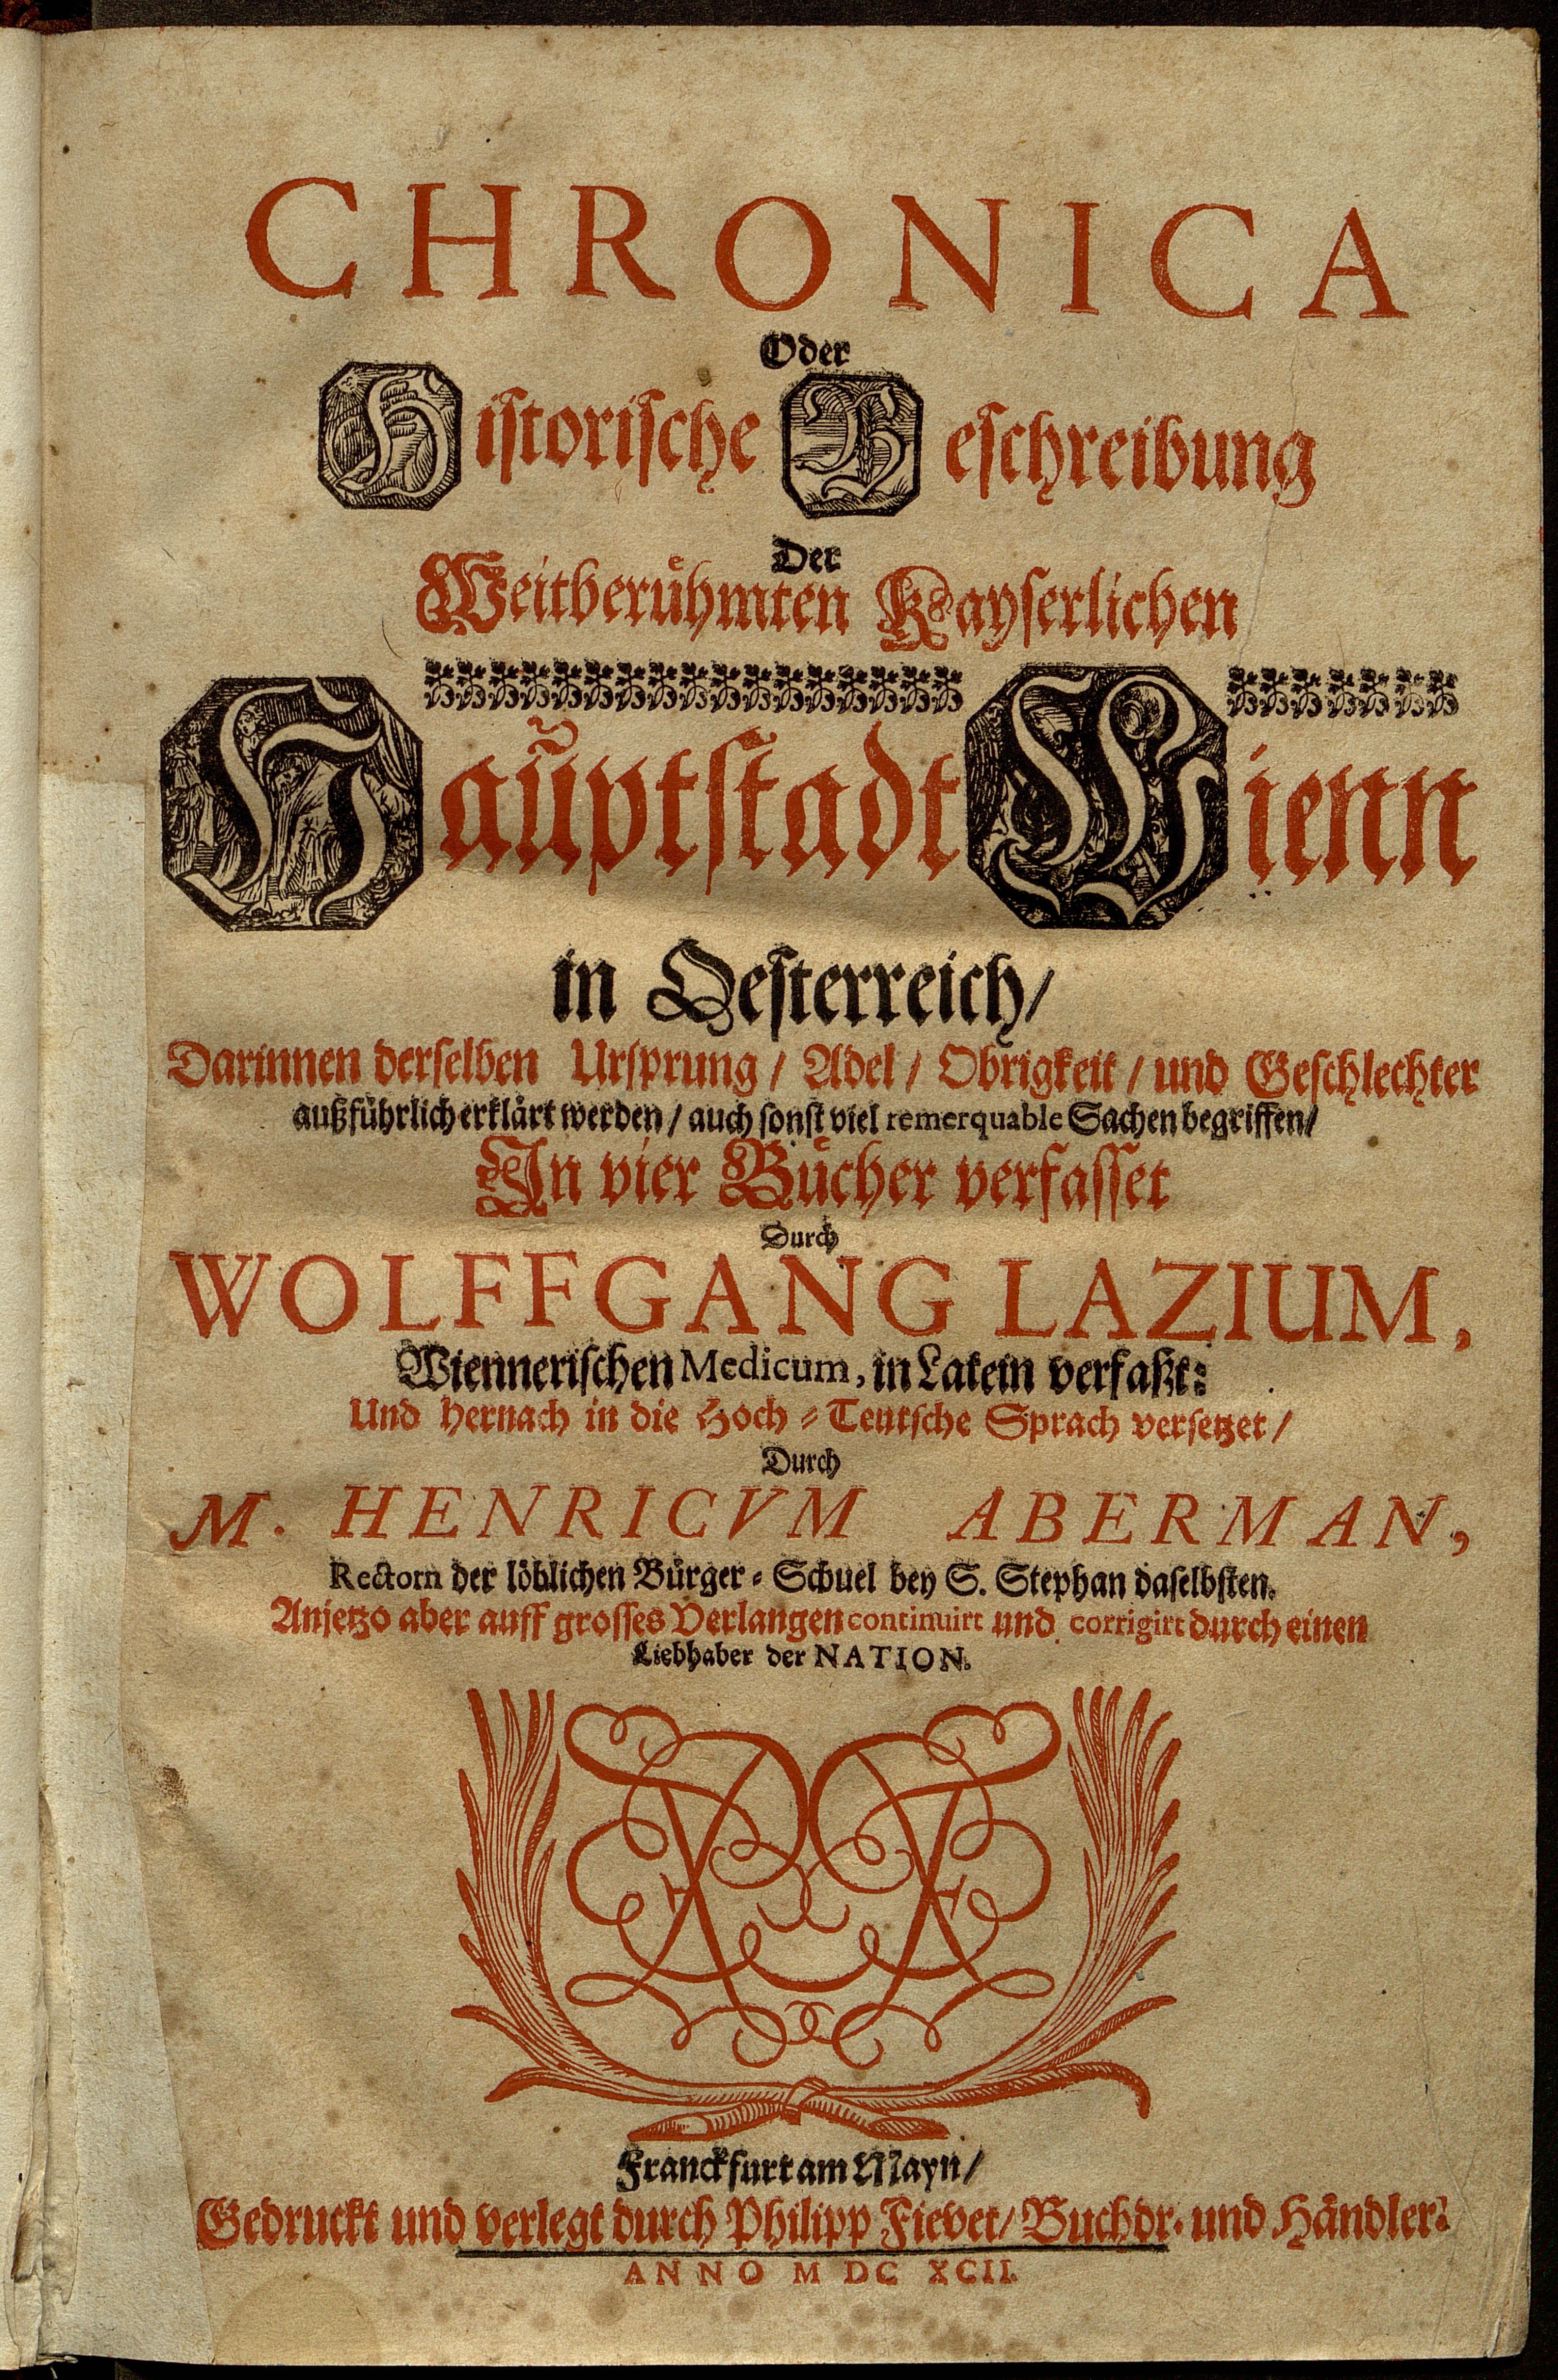 CHRONICA
Oder
Historische Beschreibung
Der
Weitberühmten Kayserlichen
Haũptstadt Wienn
in Oesterreich/
Darinnen derselben Ursprung/ Adel/ Obrigkeit/ und Geschlechter
außführlich erklärt werden/ auch sonst viel remerquable Sachen begriffen/
In vier Bücher verfasset
Durch
WOLFFGANG LAZIUM,
Wiennerischen Medicum, in Latein verfaßt:
Und hernach in die Hoch-Teutsche Sprach versetzet/
Durch
M. HENRICVM ABERMAN,
Rectorn der löblichen Bürger-Schuel bey S. Stephan daselbsten.
Anjetzo aber auff grosses Verlangen continuirt und corrigirt durch einen
Liebhaber der NATION.
Franckfurt am Mayn/
Gedruckt und verlegt durch Philipp Fievet/ Buchdr. und Händler.
ANNO M DC XCII.